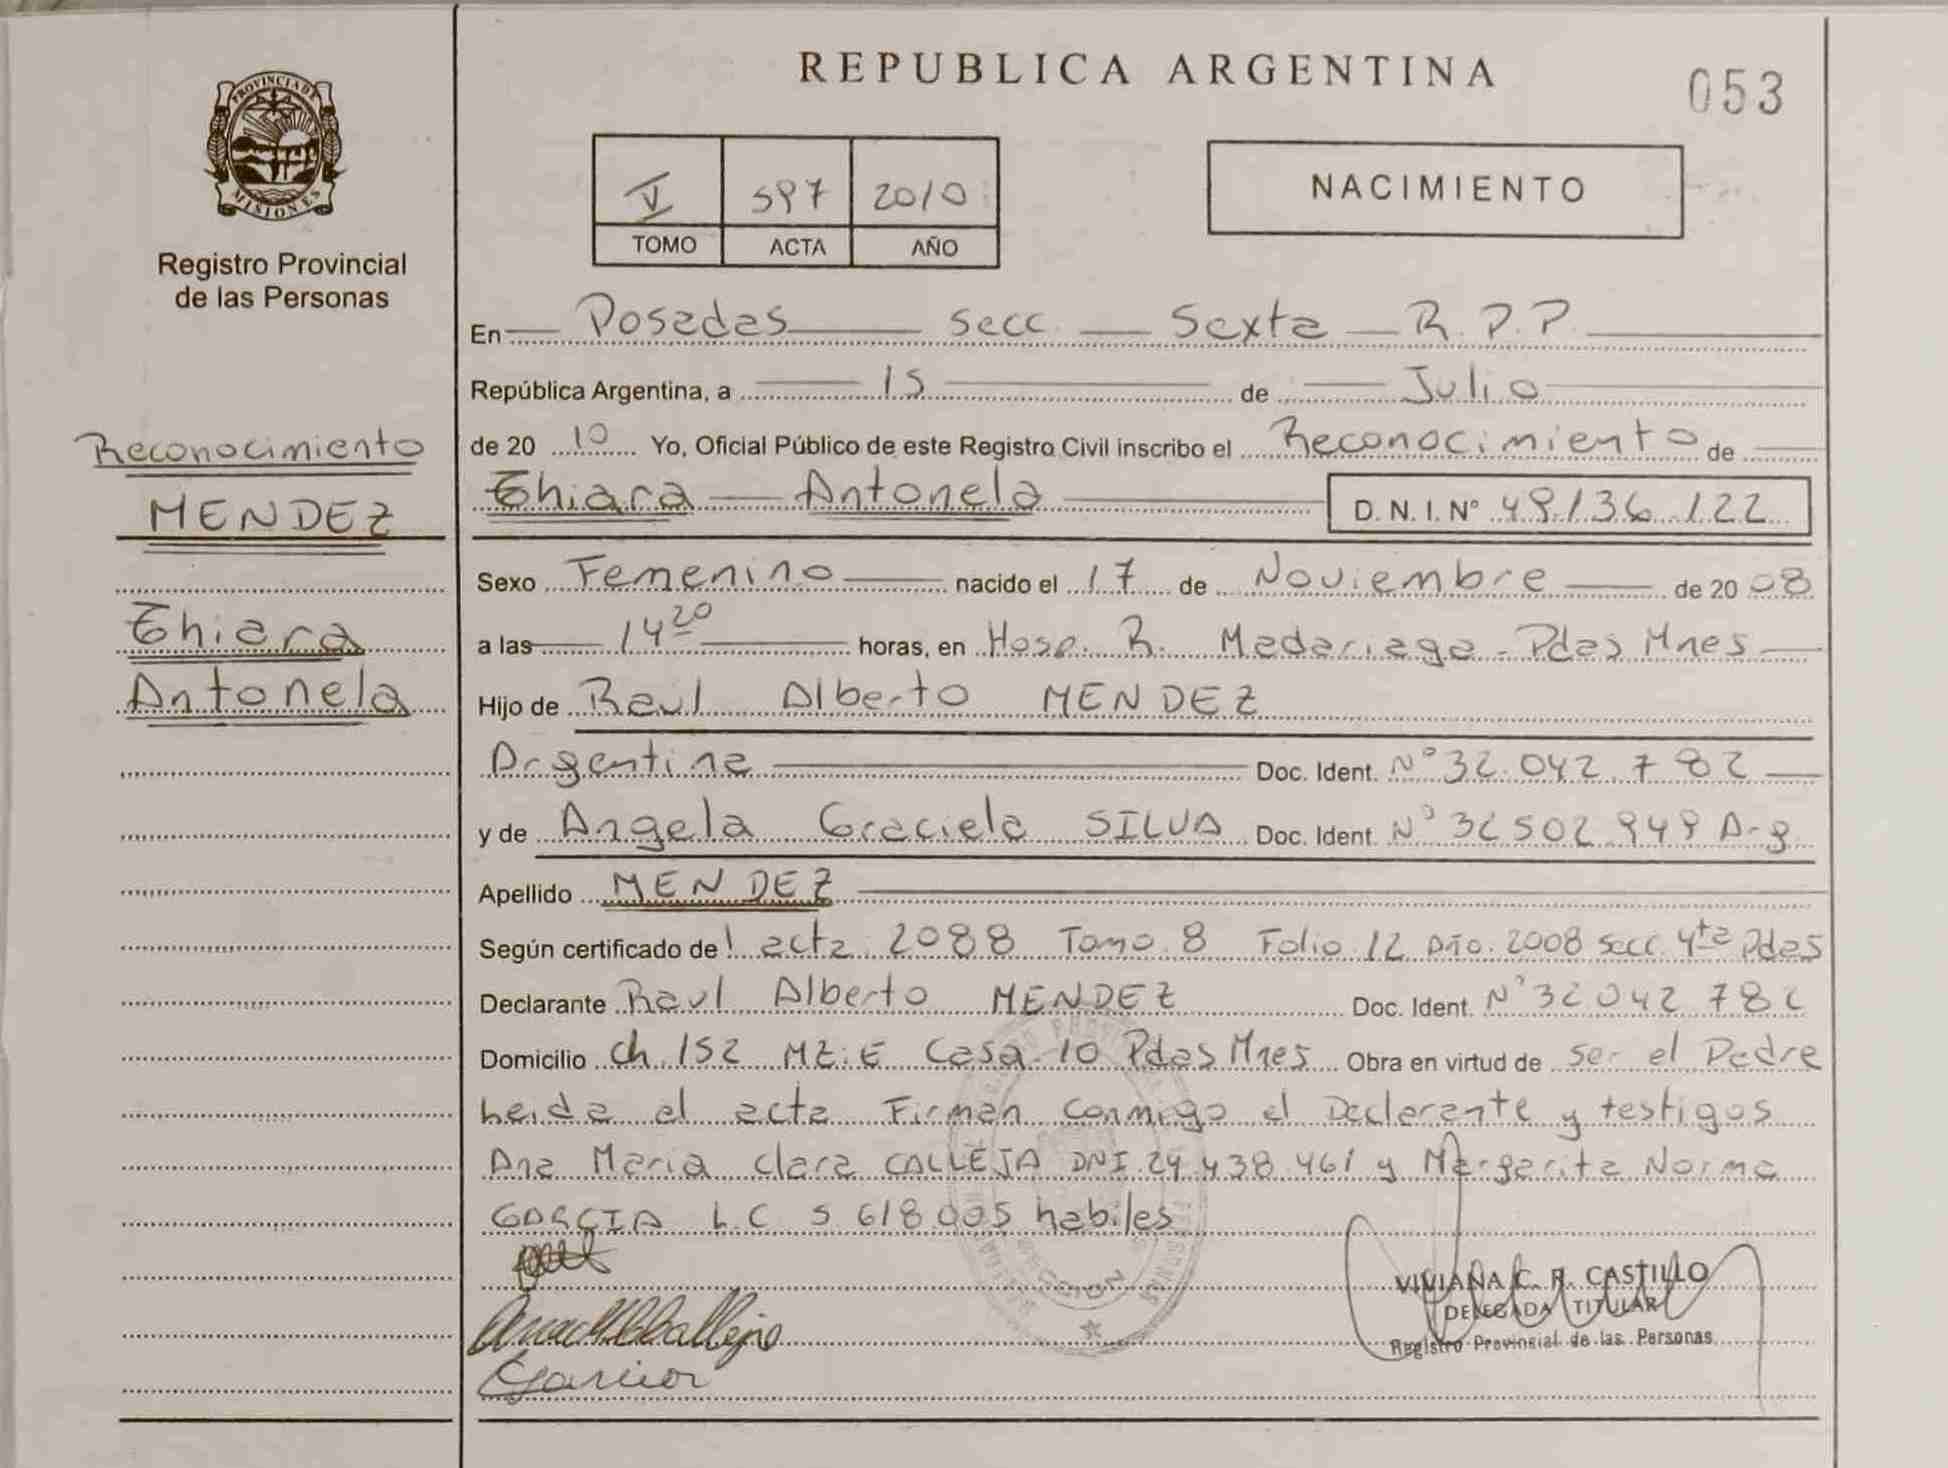 PROVINCIA DE
MISIONES
Registro Provincial
de las Personas
REPUBLICA ARGENTINA
053
V 597 2010
TOMO ACTA AÑO
NACIMIENTO
En Posadas secc. Sexta R.P.P.
República Argentina, a 15 de Julio
de 20 10 Yo, Oficial Público de este Registro Civil inscribo el Reconocimiento de
Thiara Antonela D.N.I. N° 49.136.122
Reconocimiento
MENDEZ
Thiara
Antonela
Sexo Femenino nacido el 17 de Noviembre de 20 08
a las 14 20 horas, en Hosp. R. Madariaga - Pdas Mnes
Hijo de Raul Alberto MENDEZ
Argentina Doc. Ident. N° 32.042.782
y de Angela Graciela SILVA Doc. Ident. N° 32502.949 Arg.
Apellido MENDEZ
Según certificado de acta 2088 Tomo 8 Folio 12 Año 2008 secc 4ta Pdas
Declarante Raul Alberto MENDEZ Doc. Ident. N° 32042.782
Domicilio Ch.152 Mz.E Casa 10 Pdas Mnes Obra en virtud de ser el Padre
Leida el acta Firman conmigo el Declarante y testigos
Ana Maria Clara CALLEJA DNI 24.438.461 y Margarita Norma
GARCIA L.C 5 618.005 habiles
VIVIANA C. R. CASTILLO
DELEGADA TITULAR
Registro Provincial de las Personas